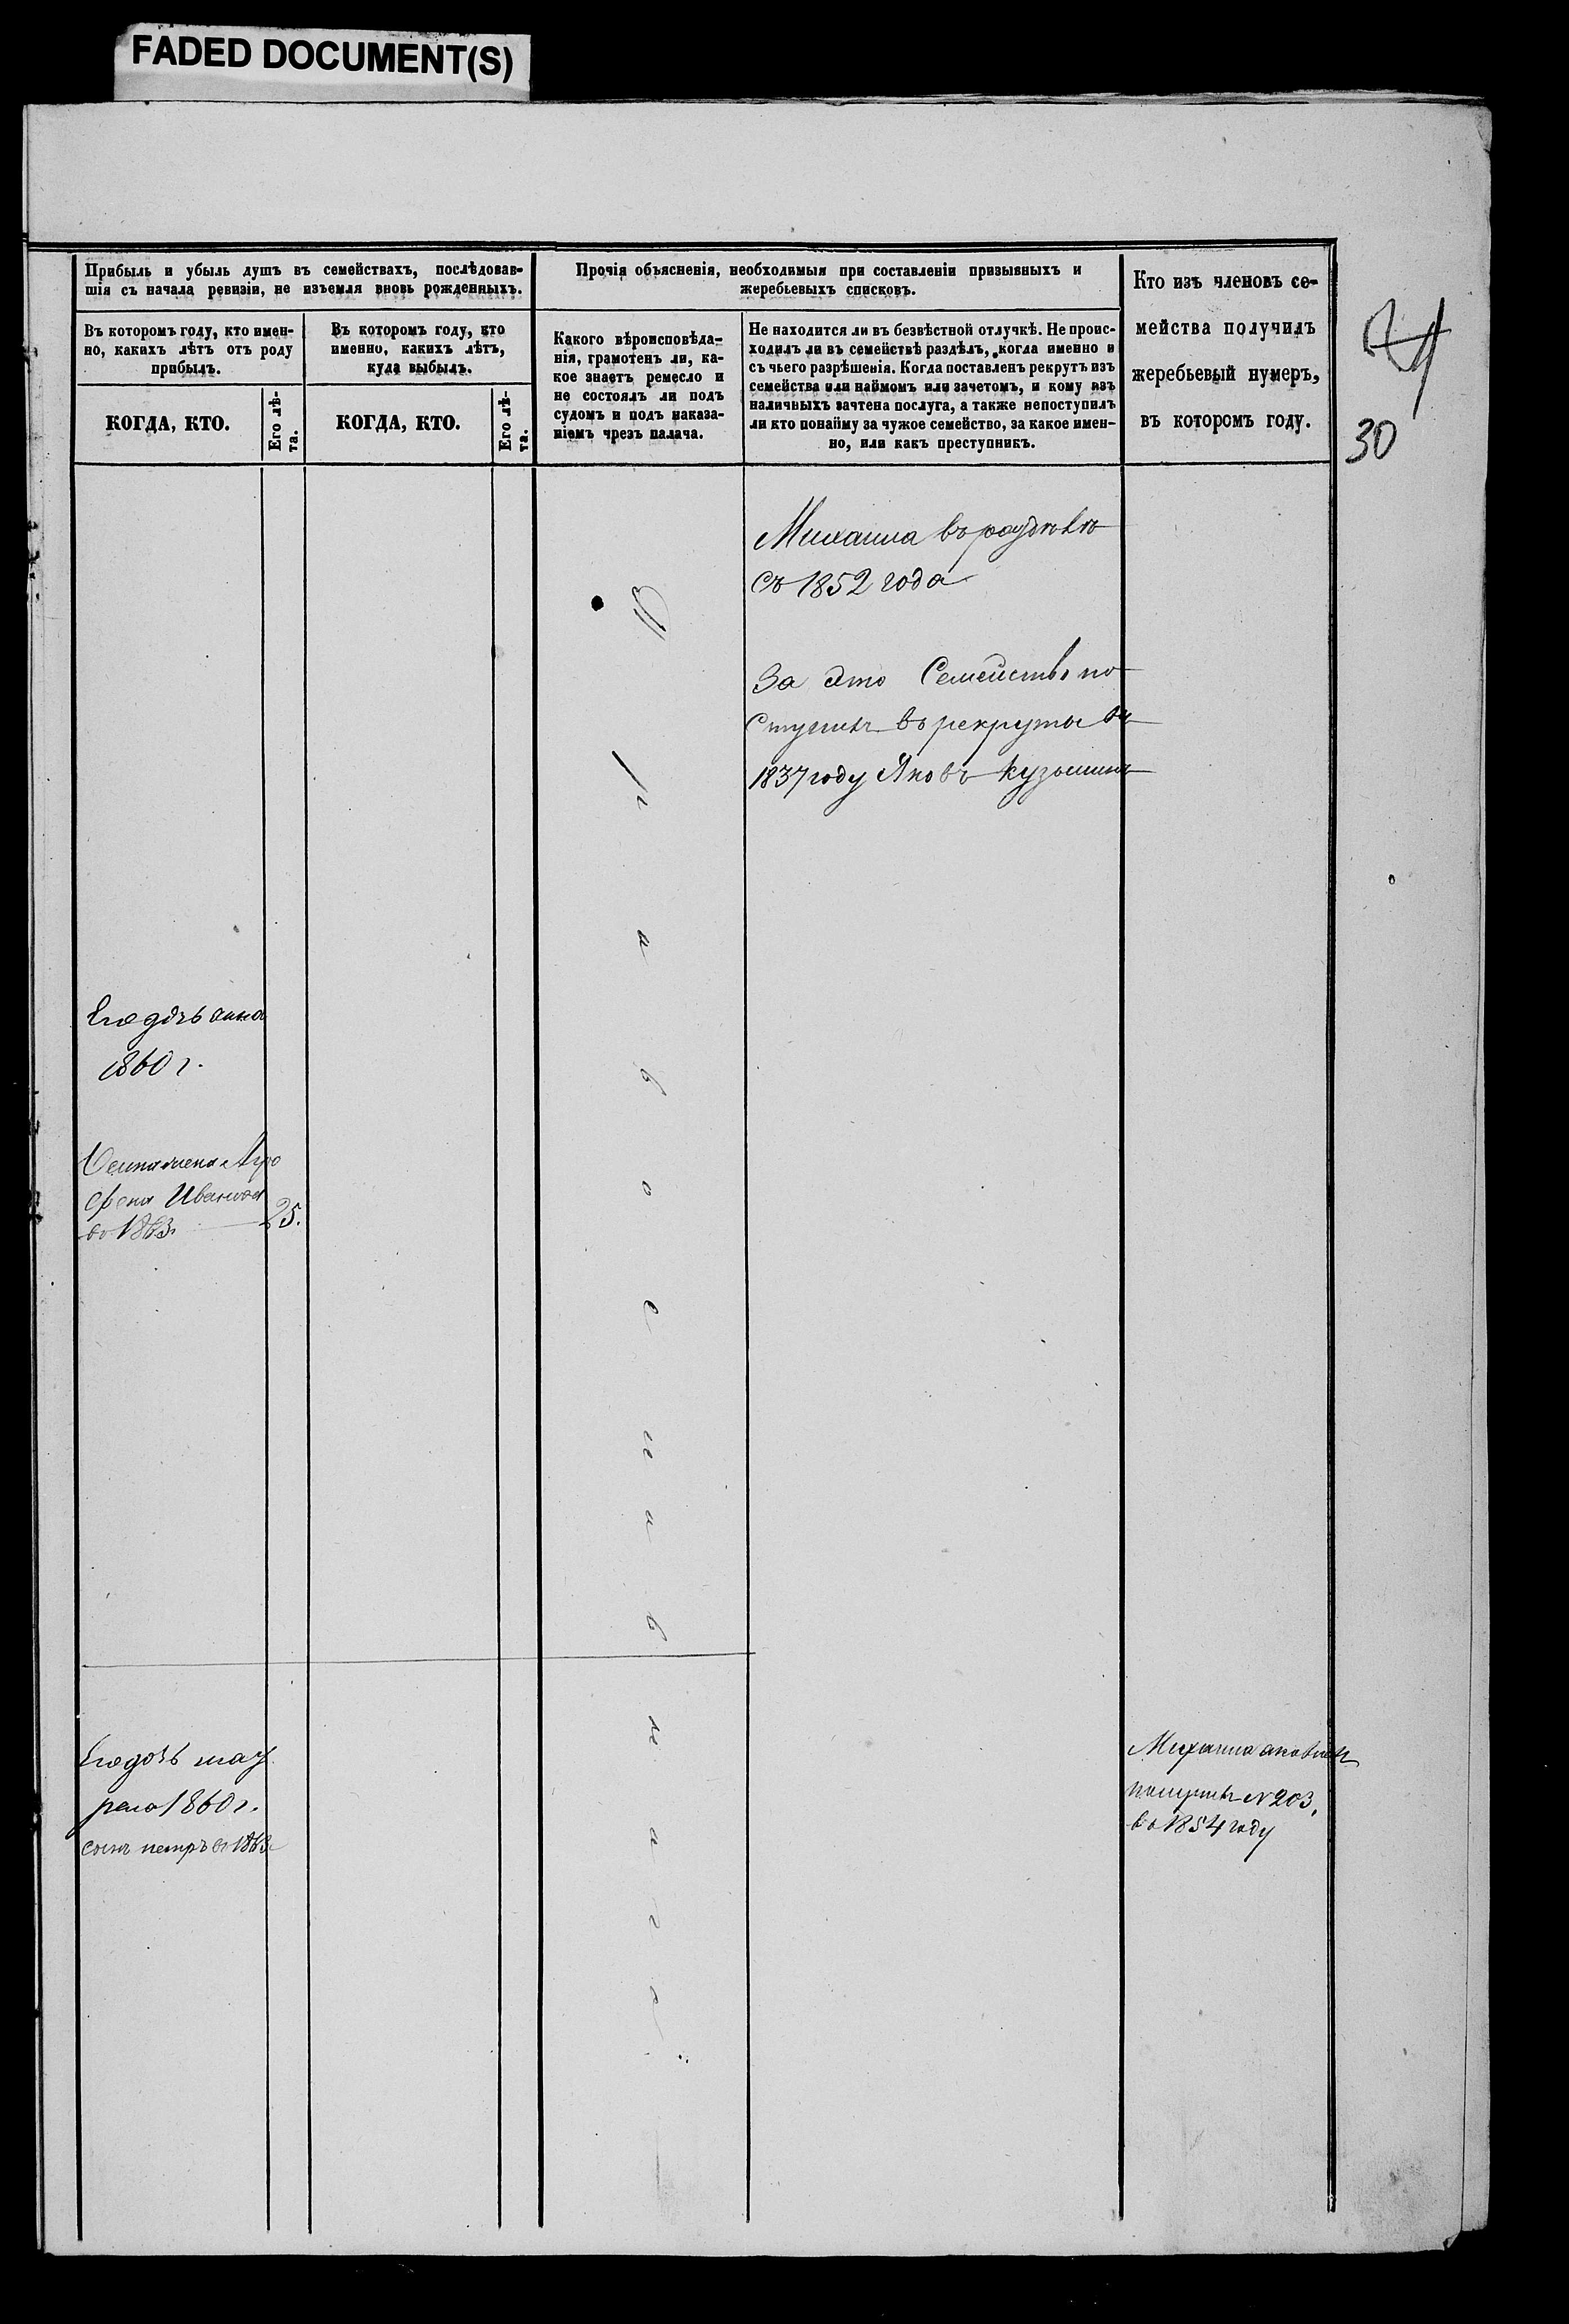 FADED DOCUMENT(S)
Прибыль и убыль душъ въ семействахъ, послѣдовав-
шія съ начала ревизіи, не изъемля вновь рожденныхъ.
Въ которомъ году, кто имен-
но, какихъ лѣтъ отъ роду
прибылъ.
КОГДА, КТО.
Его лѣ-
та.
Въ которомъ году, кто
именно, какихъ лѣтъ,
куда выбылъ.
КОГДА, КТО.
Его лѣ-
та.
Прочія объясненія, необходимыя при составленіи призывныхъ и
жеребьевыхъ списковъ.
Какого вѣроисповѣда-
нія, грамотенъ ли, ка-
кое знаетъ ремесло и
не состоялъ ли подъ
судомъ и подъ наказа-
ніемъ чрезъ палача.
Не находится ли въ безвѣстной отлучкѣ. Не проис-
ходилъ ли въ семействѣ раздѣлъ, когда именно и
съ чьего разрѣшенія. Когда поставленъ рекрутъ изъ
семейства или наймомъ или зачетомъ, и кому изъ
наличныхъ зачтена послуга, а также непоступилъ
ли кто понайму за чужое семейство, за какое имен-
но, или какъ преступникъ.
Кто изъ членовъ се-
мейства получилъ
жеребьевый нумеръ,
въ которомъ году.
30
Михаила въ раздѣлѣ
съ 1852 года
За это Семейство по
ступилъ въ рекруты въ
1837 году Яковъ Кузьминъ
П
р
а
в
о
с
л
а
в
н
а
г
о
Его дочь анна
1860 г.
жена Агра
фена Иванова
во 1863.
25.
Его дочь мав
ра 1860 г.
сынъ петръ въ 1863
Михаила
получилъ N 203,
во 1854 году